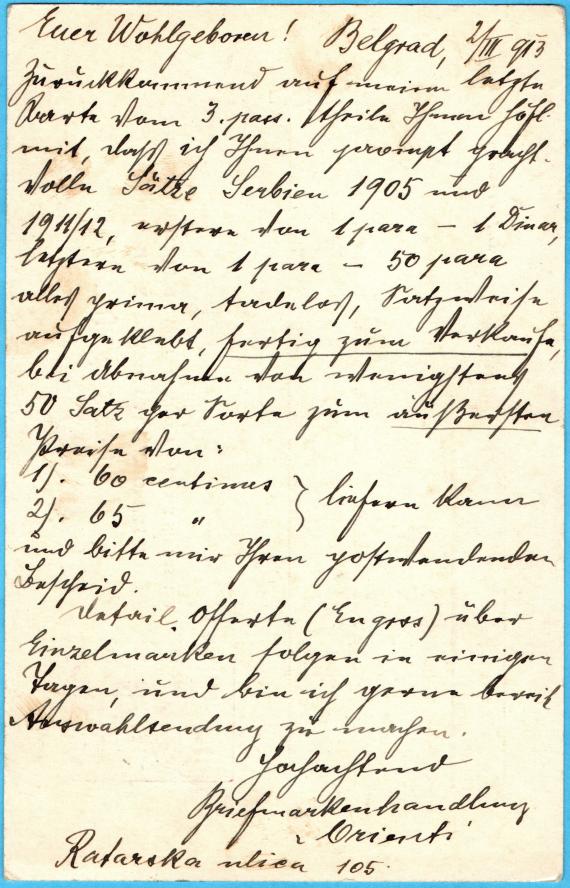 Euer Wohlgeboren! Belgrad, 2/III 913
Zurückkommend auf meine letzte
Karte vom 3. pass. theile Ihnen höfl.
mit, daß ich Ihnen prompt pracht-
volle Sätze Serbien 1905 und
1911/12, erstere von 1 para – 1 Dinar,
letztere von 1 para – 50 para
alles prima, tadellos, Satzweise
aufgeklebt, fertig zum Verkaufe,
bei Abnahme von wenigstens
50 Satz per Sorte zum äußersten
Preise von:
1). 60 centimes } liefern kann
2). 65 "
und bitte mir Ihren postwendenden
Bescheid.
Detail. Offerte (Engros) über
Einzelmarken folgen in einigen
Tagen, und bin ich gerne bereit
Auswahlsendung zu machen.
Hochachtend
Briefmarkenhandlung
"Orient"
Ratarska ulica 105.